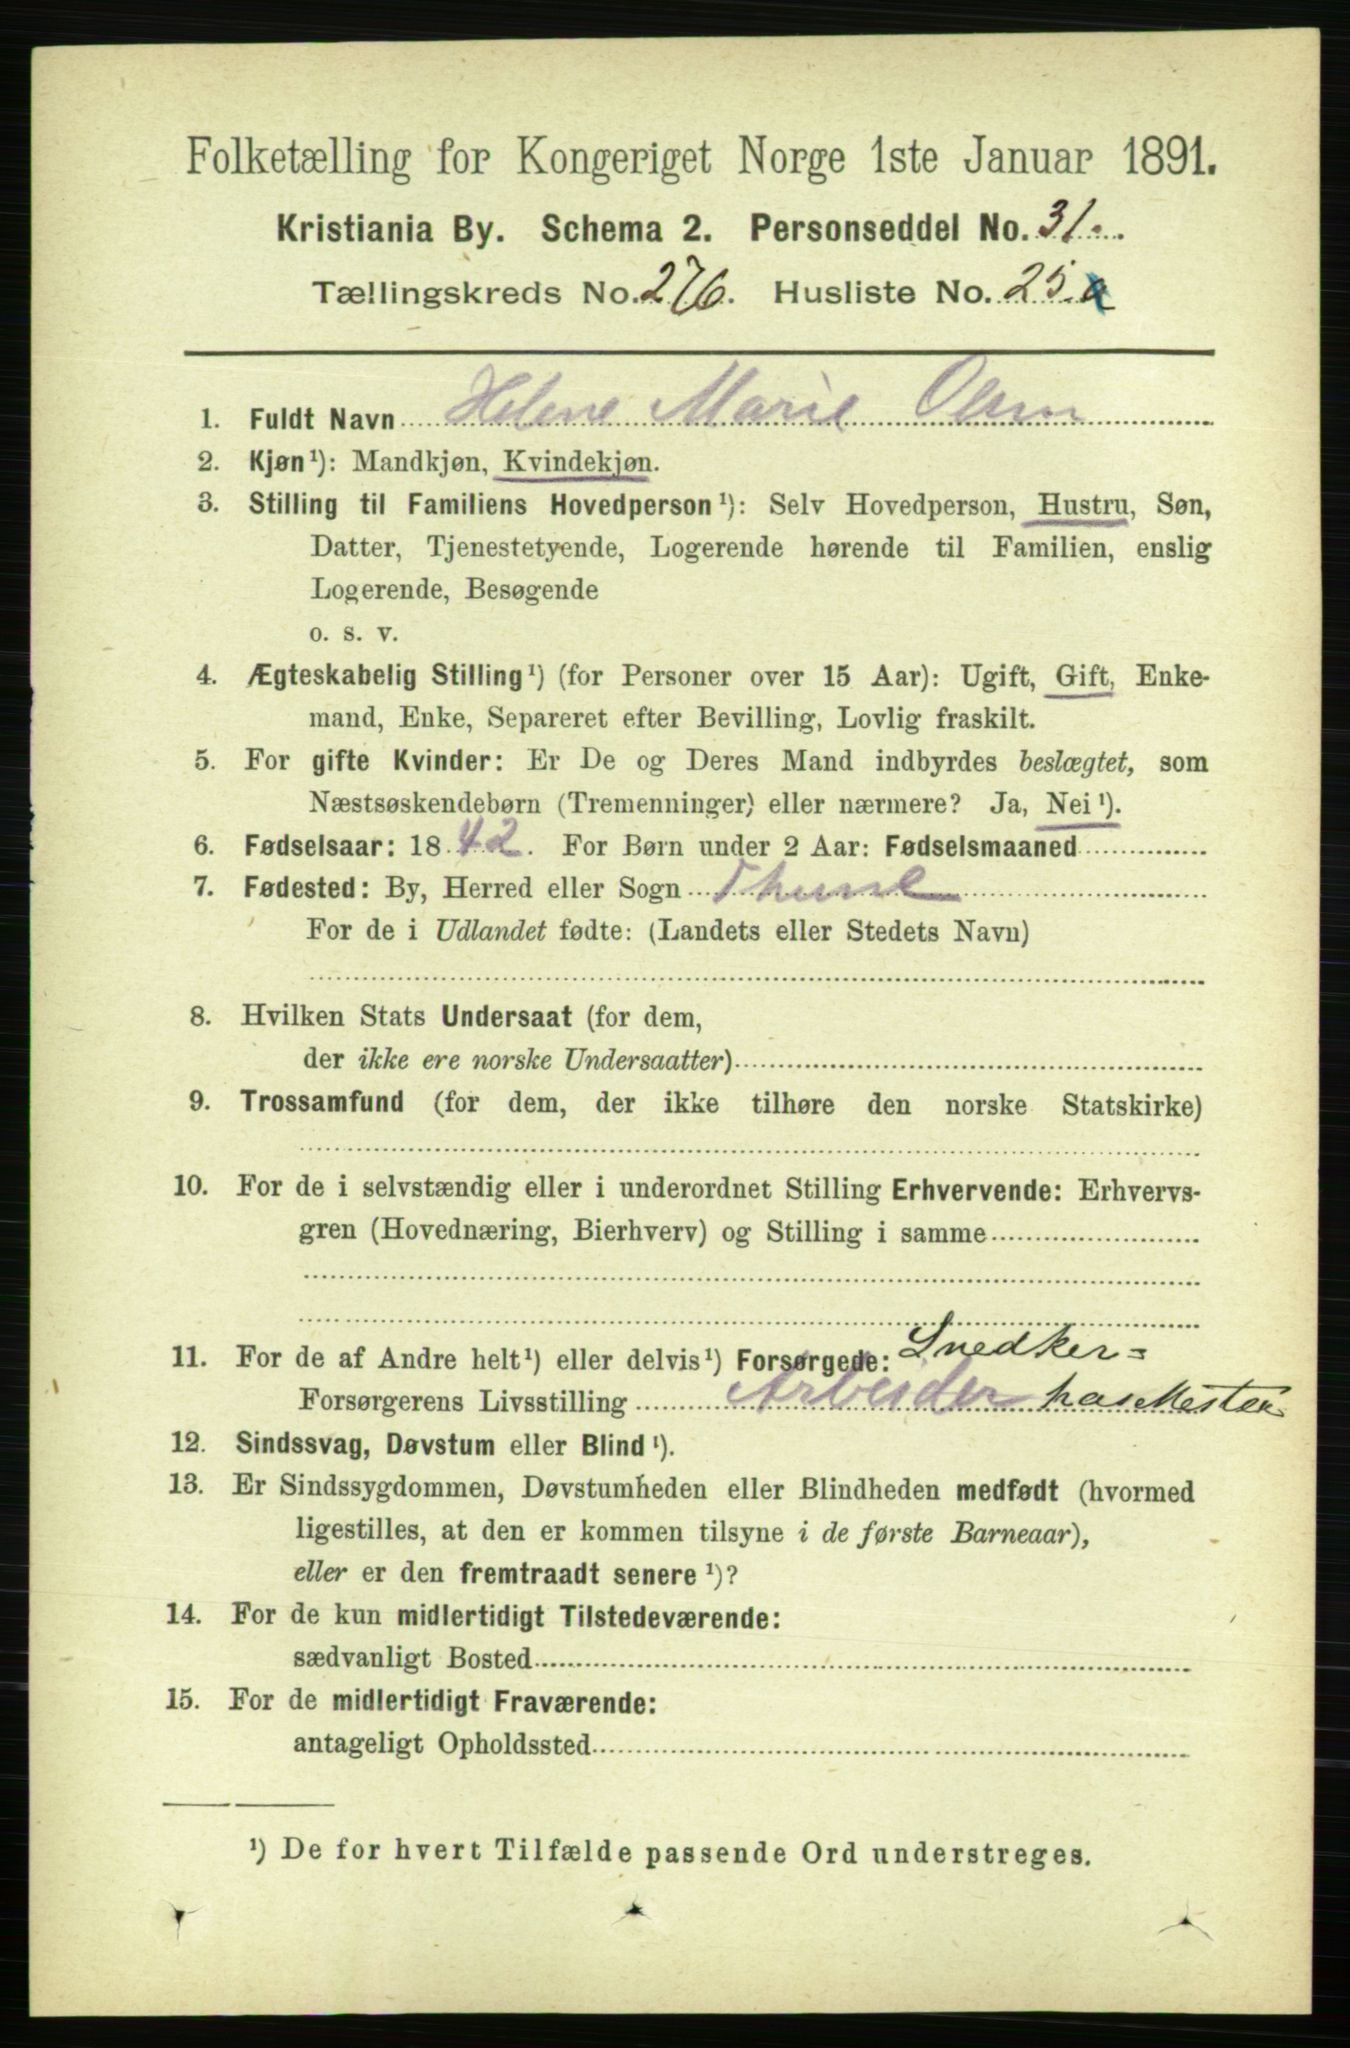 Folketælling for Kongeriget Norge 1ste Januar 1891.
Kristiania By. Schema 2. Personseddel No. 31.
Tællingskreds No. 276. Husliste No. 25 a
1. Fuldt Navn Helene Marie Olsen
2. Kjøn¹): Mandkjøn, Kvindekjøn.
3. Stilling til Familiens Hovedperson¹): Selv Hovedperson, Hustru, Søn,
Datter, Tjenestetyende, Logerende hørende til Familien, enslig
Logerende, Besøgende
o. s. v.
4. Ægteskabelig Stilling¹) (for Personer over 15 Aar): Ugift, Gift, Enke-
mand, Enke, Separeret efter Bevilling, Lovlig fraskilt.
5. For gifte Kvinder: Er De og Deres Mand indbyrdes beslægtet, som
Næstsøskendebørn (Tremenninger) eller nærmere? Ja, Nei¹).
6. Fødselsaar: 1842. For Børn under 2 Aar: Fødselsmaaned
7. Fødested: By, Herred eller Sogn Thune
For de i Udlandet fødte: (Landets eller Stedets Navn)
8. Hvilken Stats Undersaat (for dem,
der ikke ere norske Undersaatter)
9. Trossamfund (for dem, der ikke tilhøre den norske Statskirke)
10. For de i selvstændig eller i underordnet Stilling Erhvervende: Erhvervs-
gren (Hovednæring, Bierhverv) og Stilling i samme
11. For de af Andre helt¹) eller delvis¹) Forsørgede: Snedker=
Forsørgerens Livsstilling Arbeider hos Mester
12. Sindssvag, Døvstum eller Blind¹).
13. Er Sindssygdommen, Døvstumheden eller Blindheden medfødt (hvormed
ligestilles, at den er kommen tilsyne i de første Barneaar),
eller er den fremtraadt senere¹)?
14. For de kun midlertidigt Tilstedeværende:
sædvanligt Bosted
15. For de midlertidigt Fraværende:
antageligt Opholdssted
¹) De for hvert Tilfælde passende Ord understreges.